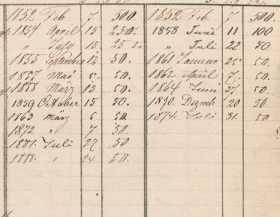 1852 Feb 7 500.
1854 April 15 250.
" Sept 15 25
1855 September 12 50.
1857 Mai 6. 50.
1858 März 13 50.
1859 October 15 50.
1863 März 5. 50.
1872 " 7 50.
1881. Juli 22 50.
1888. " 24 50.
1852 Feb. 7 500.
1858 Juni 11 100
" Juli 22 70
1861 Januar 25 50.
1862 April 7. 50.
1864 Juni 21 50.
1870. Dezmb 20 50
1874. Juli 31. 50.